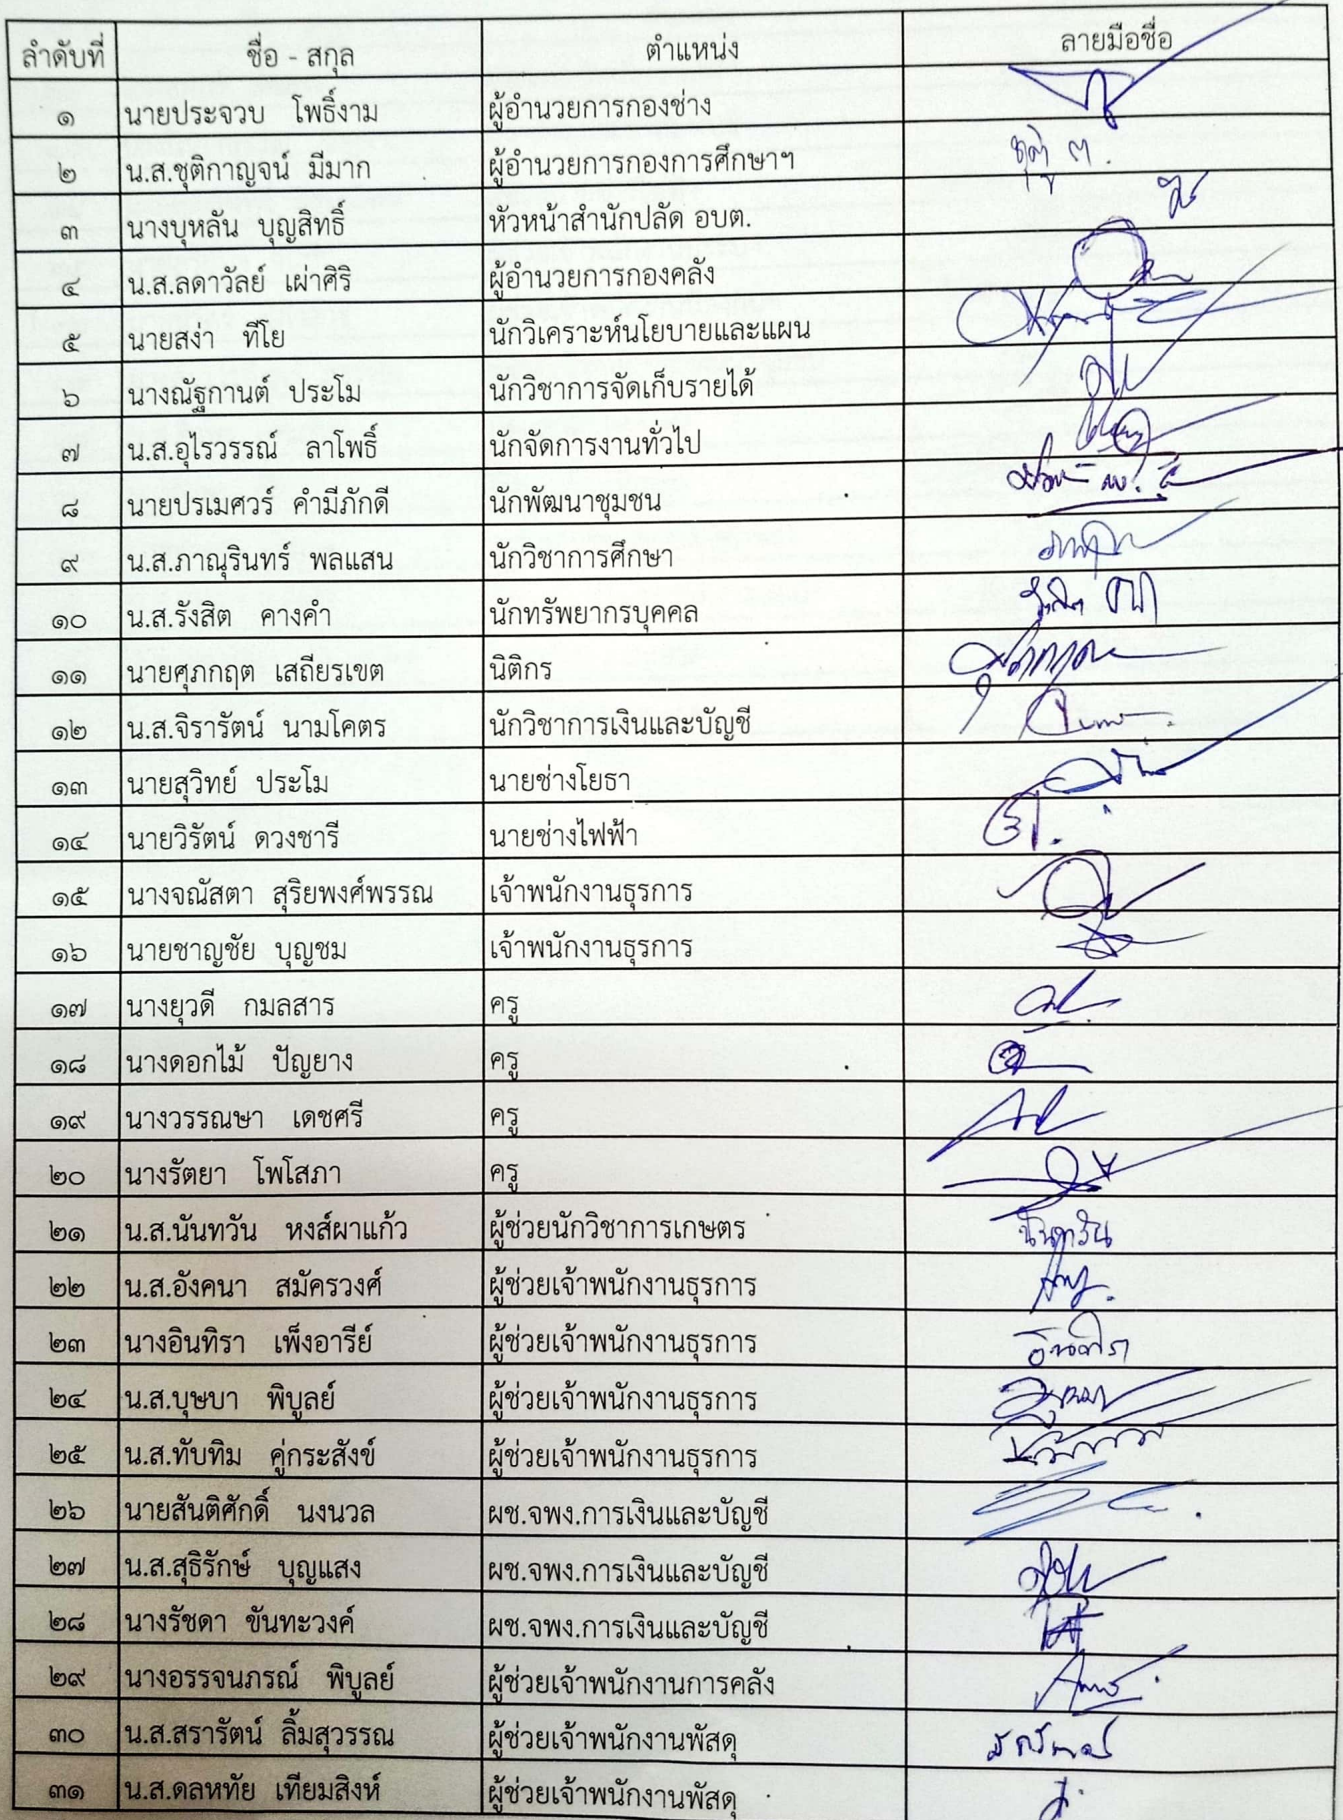 ลำดับที่ ชื่อ - สกุล ตำแหน่ง ลายมือชื่อ
๑ นายประจวบ โพธิ์งาม ผู้อำนวยการกองช่าง
๒ น.ส.ชุติกาญจน์ มีมาก ผู้อำนวยการกองการศึกษาฯ
๓ นางบุหลัน บุญสิทธิ์ หัวหน้าสำนักปลัด อบต.
๔ น.ส.ลดาวัลย์ เผ่าศิริ ผู้อำนวยการกองคลัง
๕ นายสง่า ทีโย นักวิเคราะห์นโยบายและแผน
๖ นางณัฐกานต์ ประโม นักวิชาการจัดเก็บรายได้
๗ น.ส.อุไรวรรณ์ ลาโพธิ์ นักจัดการงานทั่วไป
๘ นายปรเมศวร์ คำมีภักดี นักพัฒนาชุมชน
๙ น.ส.ภาณุรินทร์ พลแสน นักวิชาการศึกษา
๑๐ น.ส.รังสิต คางคำ นักทรัพยากรบุคคล
๑๑ นายศุภกฤต เสถียรเขต นิติกร
๑๒ น.ส.จิรารัตน์ นามโคตร นักวิชาการเงินและบัญชี
๑๓ นายสุวิทย์ ประโม นายช่างโยธา
๑๔ นายวิรัตน์ ดวงชารี นายช่างไฟฟ้า
๑๕ นางจณัสตา สุริยพงศ์พรรณ เจ้าพนักงานธุรการ
๑๖ นายชาญชัย บุญชม เจ้าพนักงานธุรการ
๑๗ นางยุวดี กมลสาร ครู
๑๘ นางดอกไม้ ปัญยาง ครู
๑๙ นางวรรณษา เดชศรี ครู
๒๐ นางรัตยา โพโสภา ครู
๒๑ น.ส.นันทวัน หงส์ผาแก้ว ผู้ช่วยนักวิชาการเกษตร นันทวัน
๒๒ น.ส.อังคนา สมัครวงศ์ ผู้ช่วยเจ้าพนักงานธุรการ
๒๓ นางอินทิรา เพ็งอารีย์ ผู้ช่วยเจ้าพนักงานธุรการ อินทิรา
๒๔ น.ส.บุษบา พิบูลย์ ผู้ช่วยเจ้าพนักงานธุรการ
๒๕ น.ส.ทับทิม คู่กระสังข์ ผู้ช่วยเจ้าพนักงานธุรการ
๒๖ นายสันติศักดิ์ นงนวล ผช.จพง.การเงินและบัญชี
๒๗ น.ส.สุธิรักษ์ บุญแสง ผช.จพง.การเงินและบัญชี
๒๘ นางรัชดา ขันทะวงค์ ผช.จพง.การเงินและบัญชี
๒๙ นางอรรจนภรณ์ พิบูลย์ ผู้ช่วยเจ้าพนักงานการคลัง
๓๐ น.ส.สรารัตน์ ลิ้มสุวรรณ ผู้ช่วยเจ้าพนักงานพัสดุ
๓๑ น.ส.ดลหทัย เทียมสิงห์ ผู้ช่วยเจ้าพนักงานพัสดุ